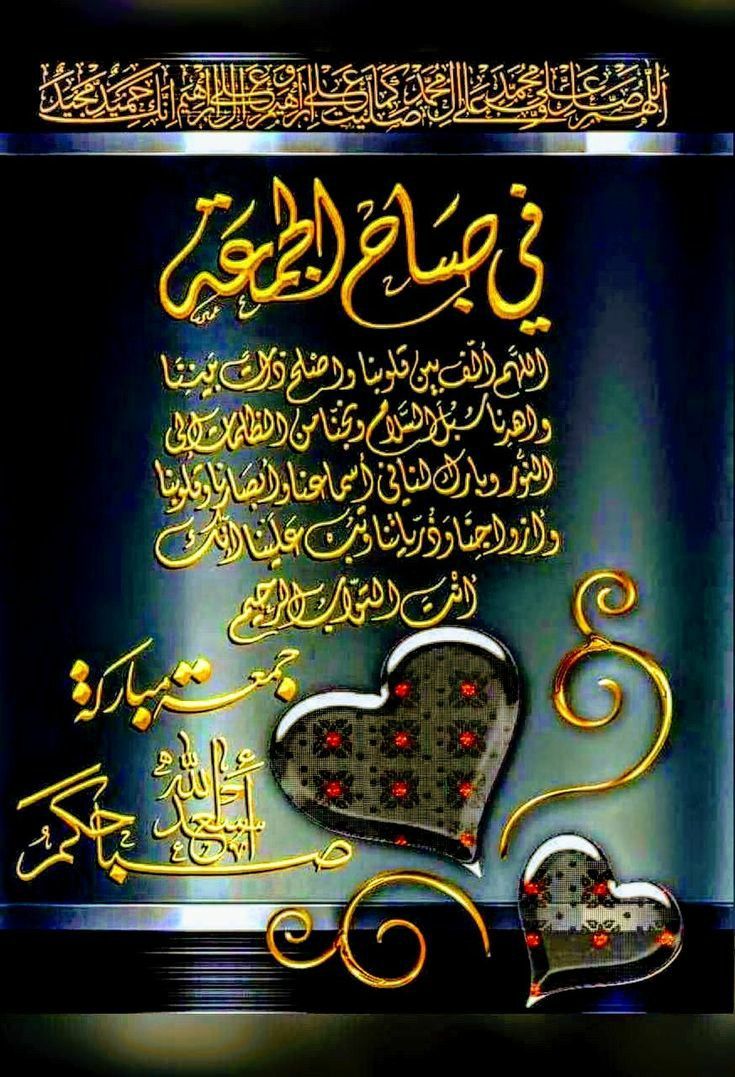 اللهم صل على محمد وعلى آل محمد كما صليت على ابراهيم وعلى آل ابراهيم إنك حميد مجيد
في صباح الجمعة
اللهم ألف بين قلوبنا واصلح ذات بيننا
واهدنا سبل السلام ونجنا من الظلمات إلى
النور وبارك لنا في أسماعنا وأبصارنا وقلوبنا
وأزواجنا وذرياتنا وتب علينا انك
أنت التواب الرحيم
جمعة مباركة
أسعد الله
صباحكم